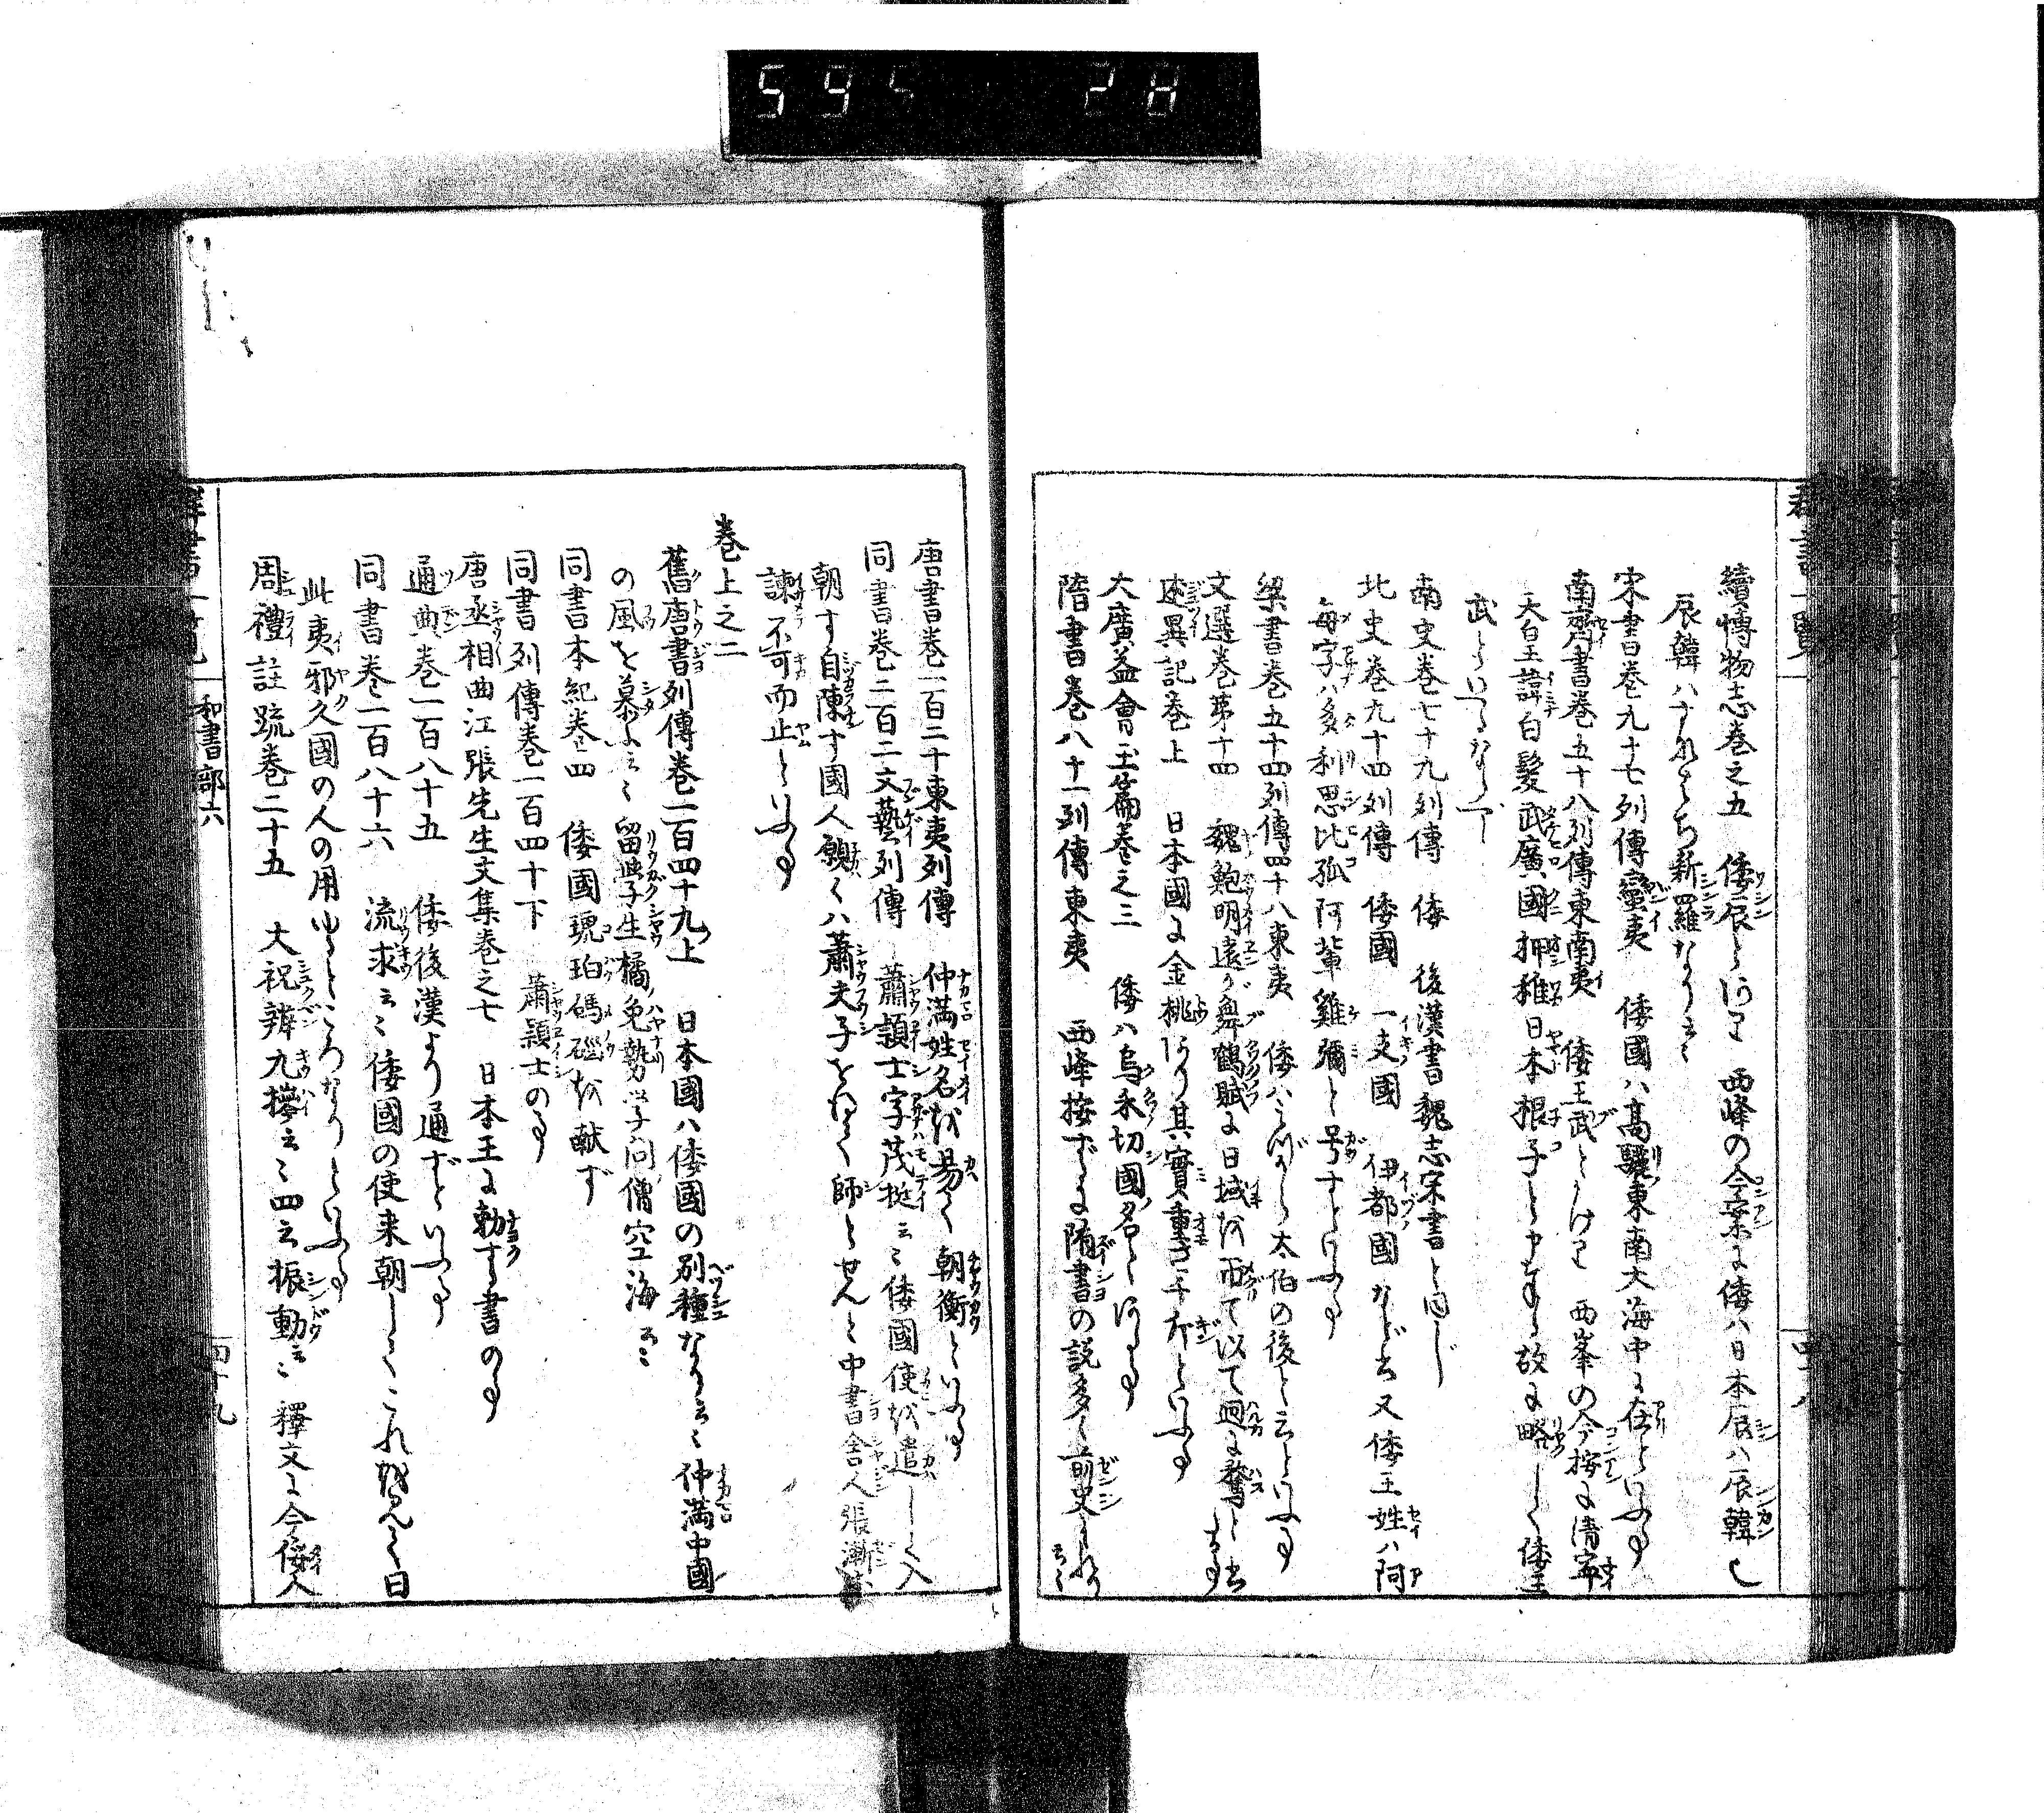 595 28
群書一覧
續博物志巻之五 倭辰とあり 西峰の今案に倭ハ日本辰ハ辰韓也
辰韓ハすなハち新羅なり云々
宋書巻九十七列傳蠻夷 倭國ハ髙驪東南大海中に在といふ事
南齊書巻五十八列傳東南夷 倭王武とあり 西峯の今按に清寧
天皇諱白髮武廣國押稚日本根子と申奉る故に略して倭王
武といへるなるべし
南史巻七十九列傳 倭 後漢書魏志宋書と同じ
北史巻九十四列傳 倭國 一支國 伊都國など出又倭王姓ハ阿
毎字ハ多利思比孤阿輩雞彌と号すといふ事
梁書巻五十四列傳四十八東夷 倭ハみづから太伯の後と云といふ事
文選巻第十四 魏鮑明遠が舞鶴賦に日域を帀て以て廻に鶩と出る事
述異記巻上 日本國に金桃あり其實重さ一斤といふ事
大廣益會玉篇巻之三 倭ハ烏禾切國ノ名とある事
隋書巻八十一列傳東夷 西峰按ずるに隋書の説多く前史による云々
唐書巻二百二十東夷列傳 仲満姓名を易く朝衡といふ事
同書巻二百二文藝列傳 蕭頴士字茂挺云々倭國使を遣して入
朝す自陳す國人願くハ蕭夫子を得て師とせんと中書舎人張漸等
諫不可而止といふ事
巻上之二
舊唐書列傳巻一百四十九上 日本國ハ倭國の別種なり云々仲満中國
の風を慕ふ云々留學生橘免勢学問僧空海云々
同書本紀巻四 倭國琥珀碼碯を献ず
同書列傳巻一百四十下 蕭頴士の事
唐丞相曲江張先生文集巻之七 日本王に勅する書の事
通典巻一百八十五 倭後漢より通ずといふ事
同書巻一百八十六 流求云々倭國の使来朝してこれを見て曰
此夷邪久國の人の用ゆるところなりといふ事
周禮註疏巻二十五 大祝辨九㩺云々四云振動云々釋文に今倭人
群書一覧 和書部六 四十九